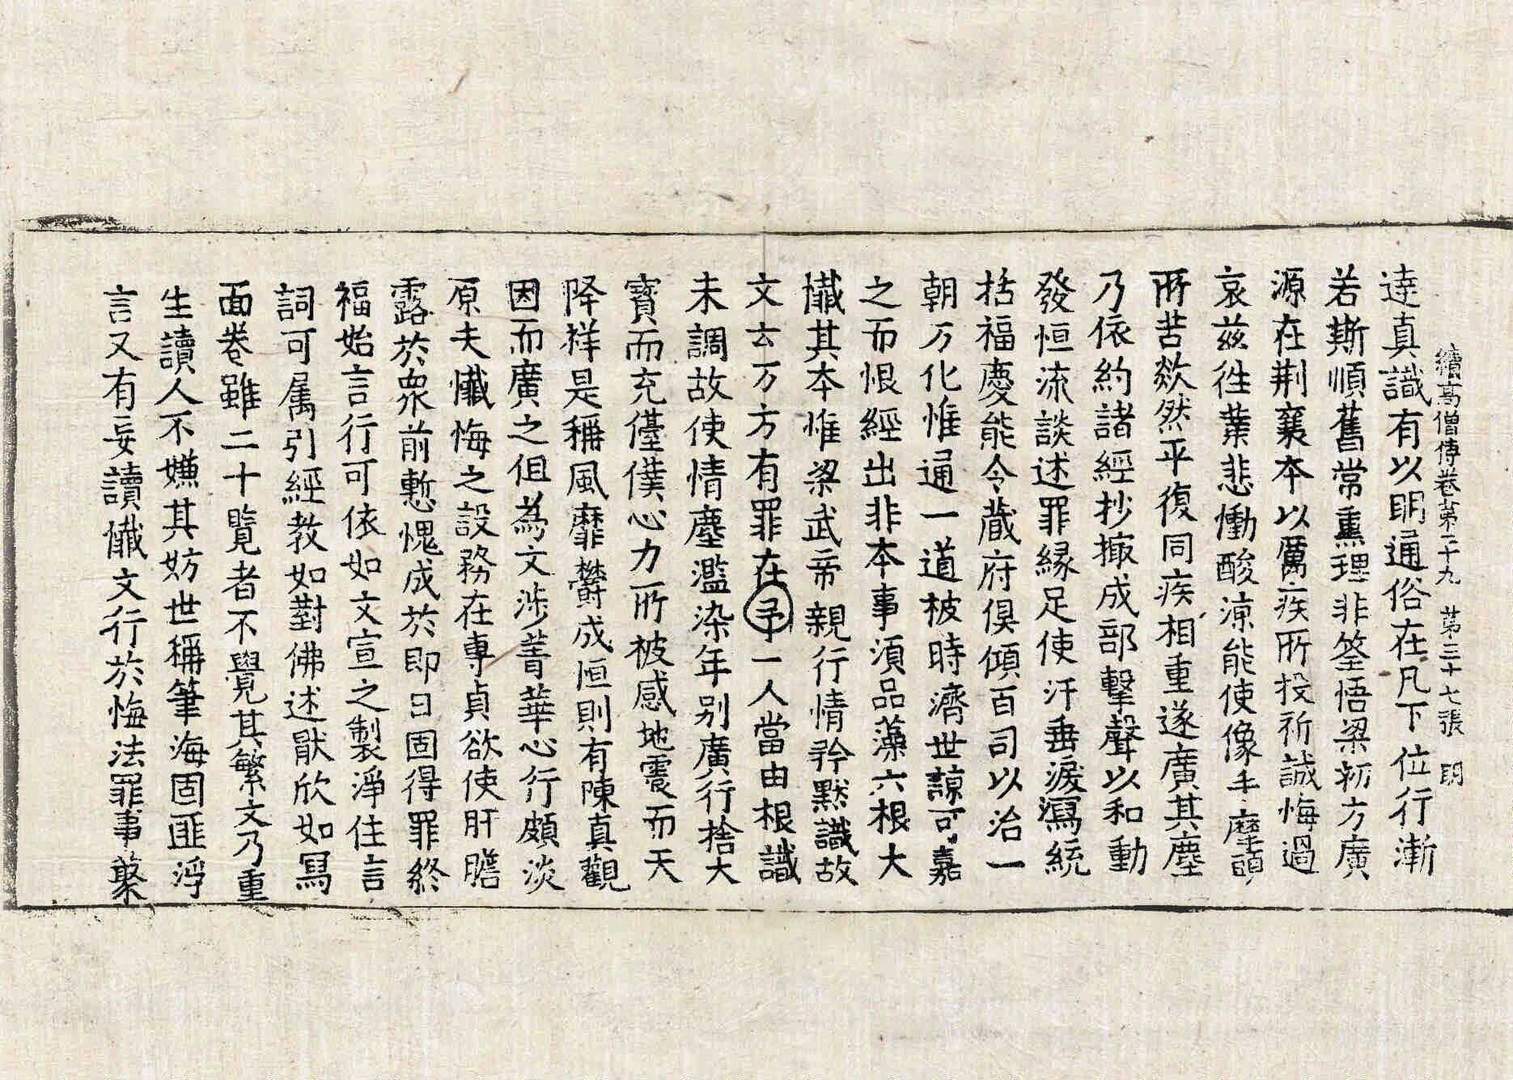 續高僧傳卷第二十九 第三十七張 明
達真識有以明通俗在凡下位行漸
若斯順舊常熏理非筌悟梁初方廣
源在荆襄本以厲疾所投祈誠悔過
哀兹往業悲慟酸凉能使像手摩頭
所苦欻然平復同疾相重遂廣其塵
乃依約諸經抄撮成部擊聲以和動
發恒流談述罪緣足使汗垂淚瀉統
括福慶能令藏府俱傾百司以治一
朝万化惟通一道被時濟世諒可嘉
之而恨經出非本事須品藻六根大
懺其本惟梁武帝親行情矜默識故
文云万方有罪在予一人當由根識
未調故使情塵濫染年別廣行捨大
寶而充僮僕心力所被感地震而天
降祥是稱風靡欝成恒則有陳真觀
因而廣之但為文涉菁華心行頗淡
原夫懺悔之設務在專貞欲使肝膽
露於眾前慙愧成於即日固得罪終
福始言行可依如文宣之製淨住言
詞可属引經教如對佛述厭欣如寫
面卷雖二十覽者不覺其繁文乃重
生讀人不嫌其妨世稱筆海固匪浮
言又有妄讀懺文行於悔法罪事蘩